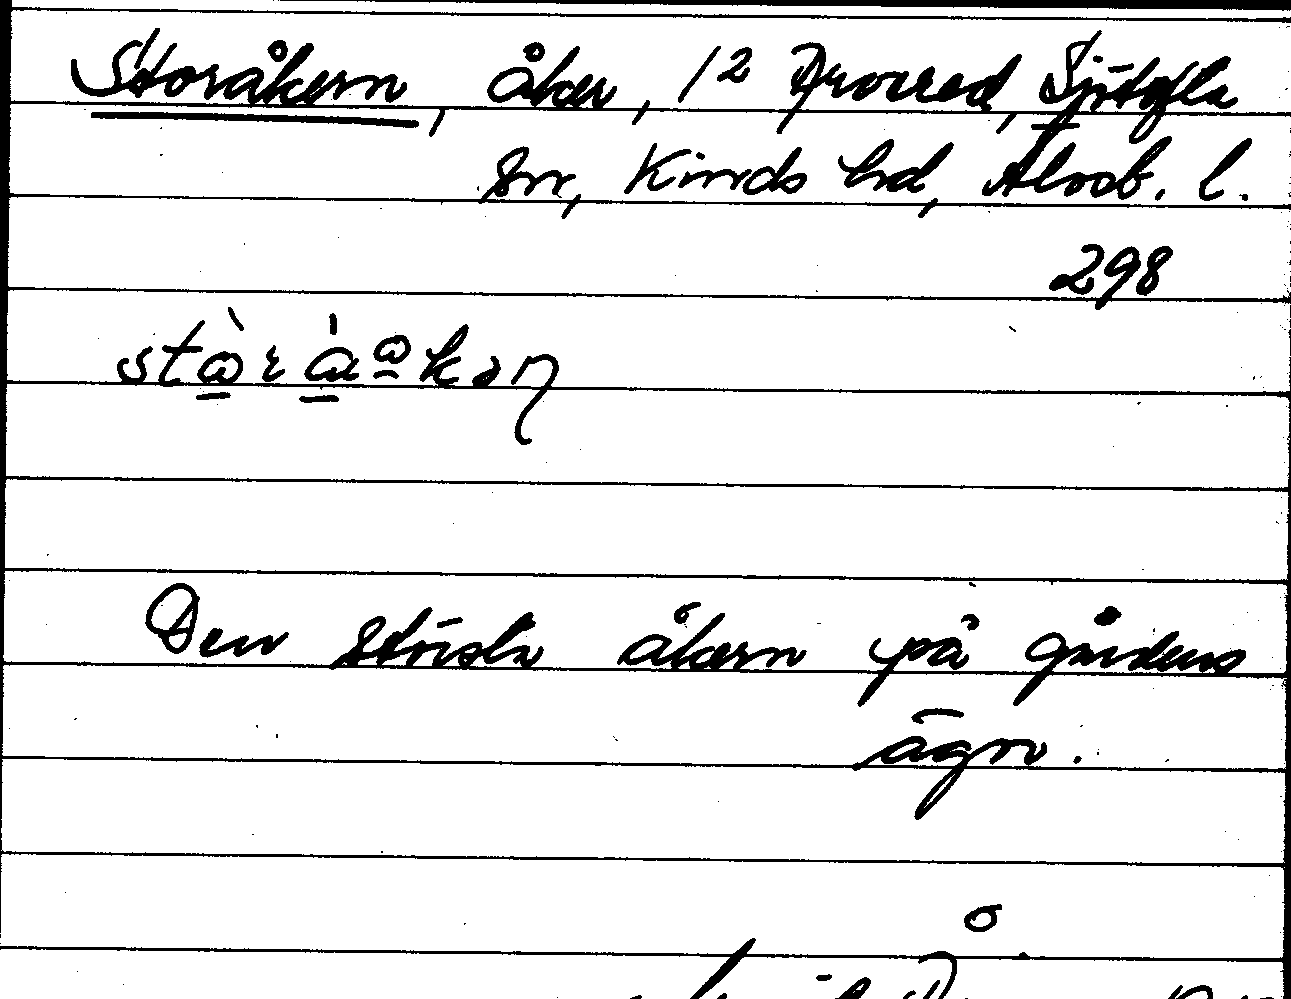 Storåkern, åker, 1² Ärovred, Sjötofta
sn, Kinds hd, Älvsb. l.
298
Den största åkern på gårdens
ägor.